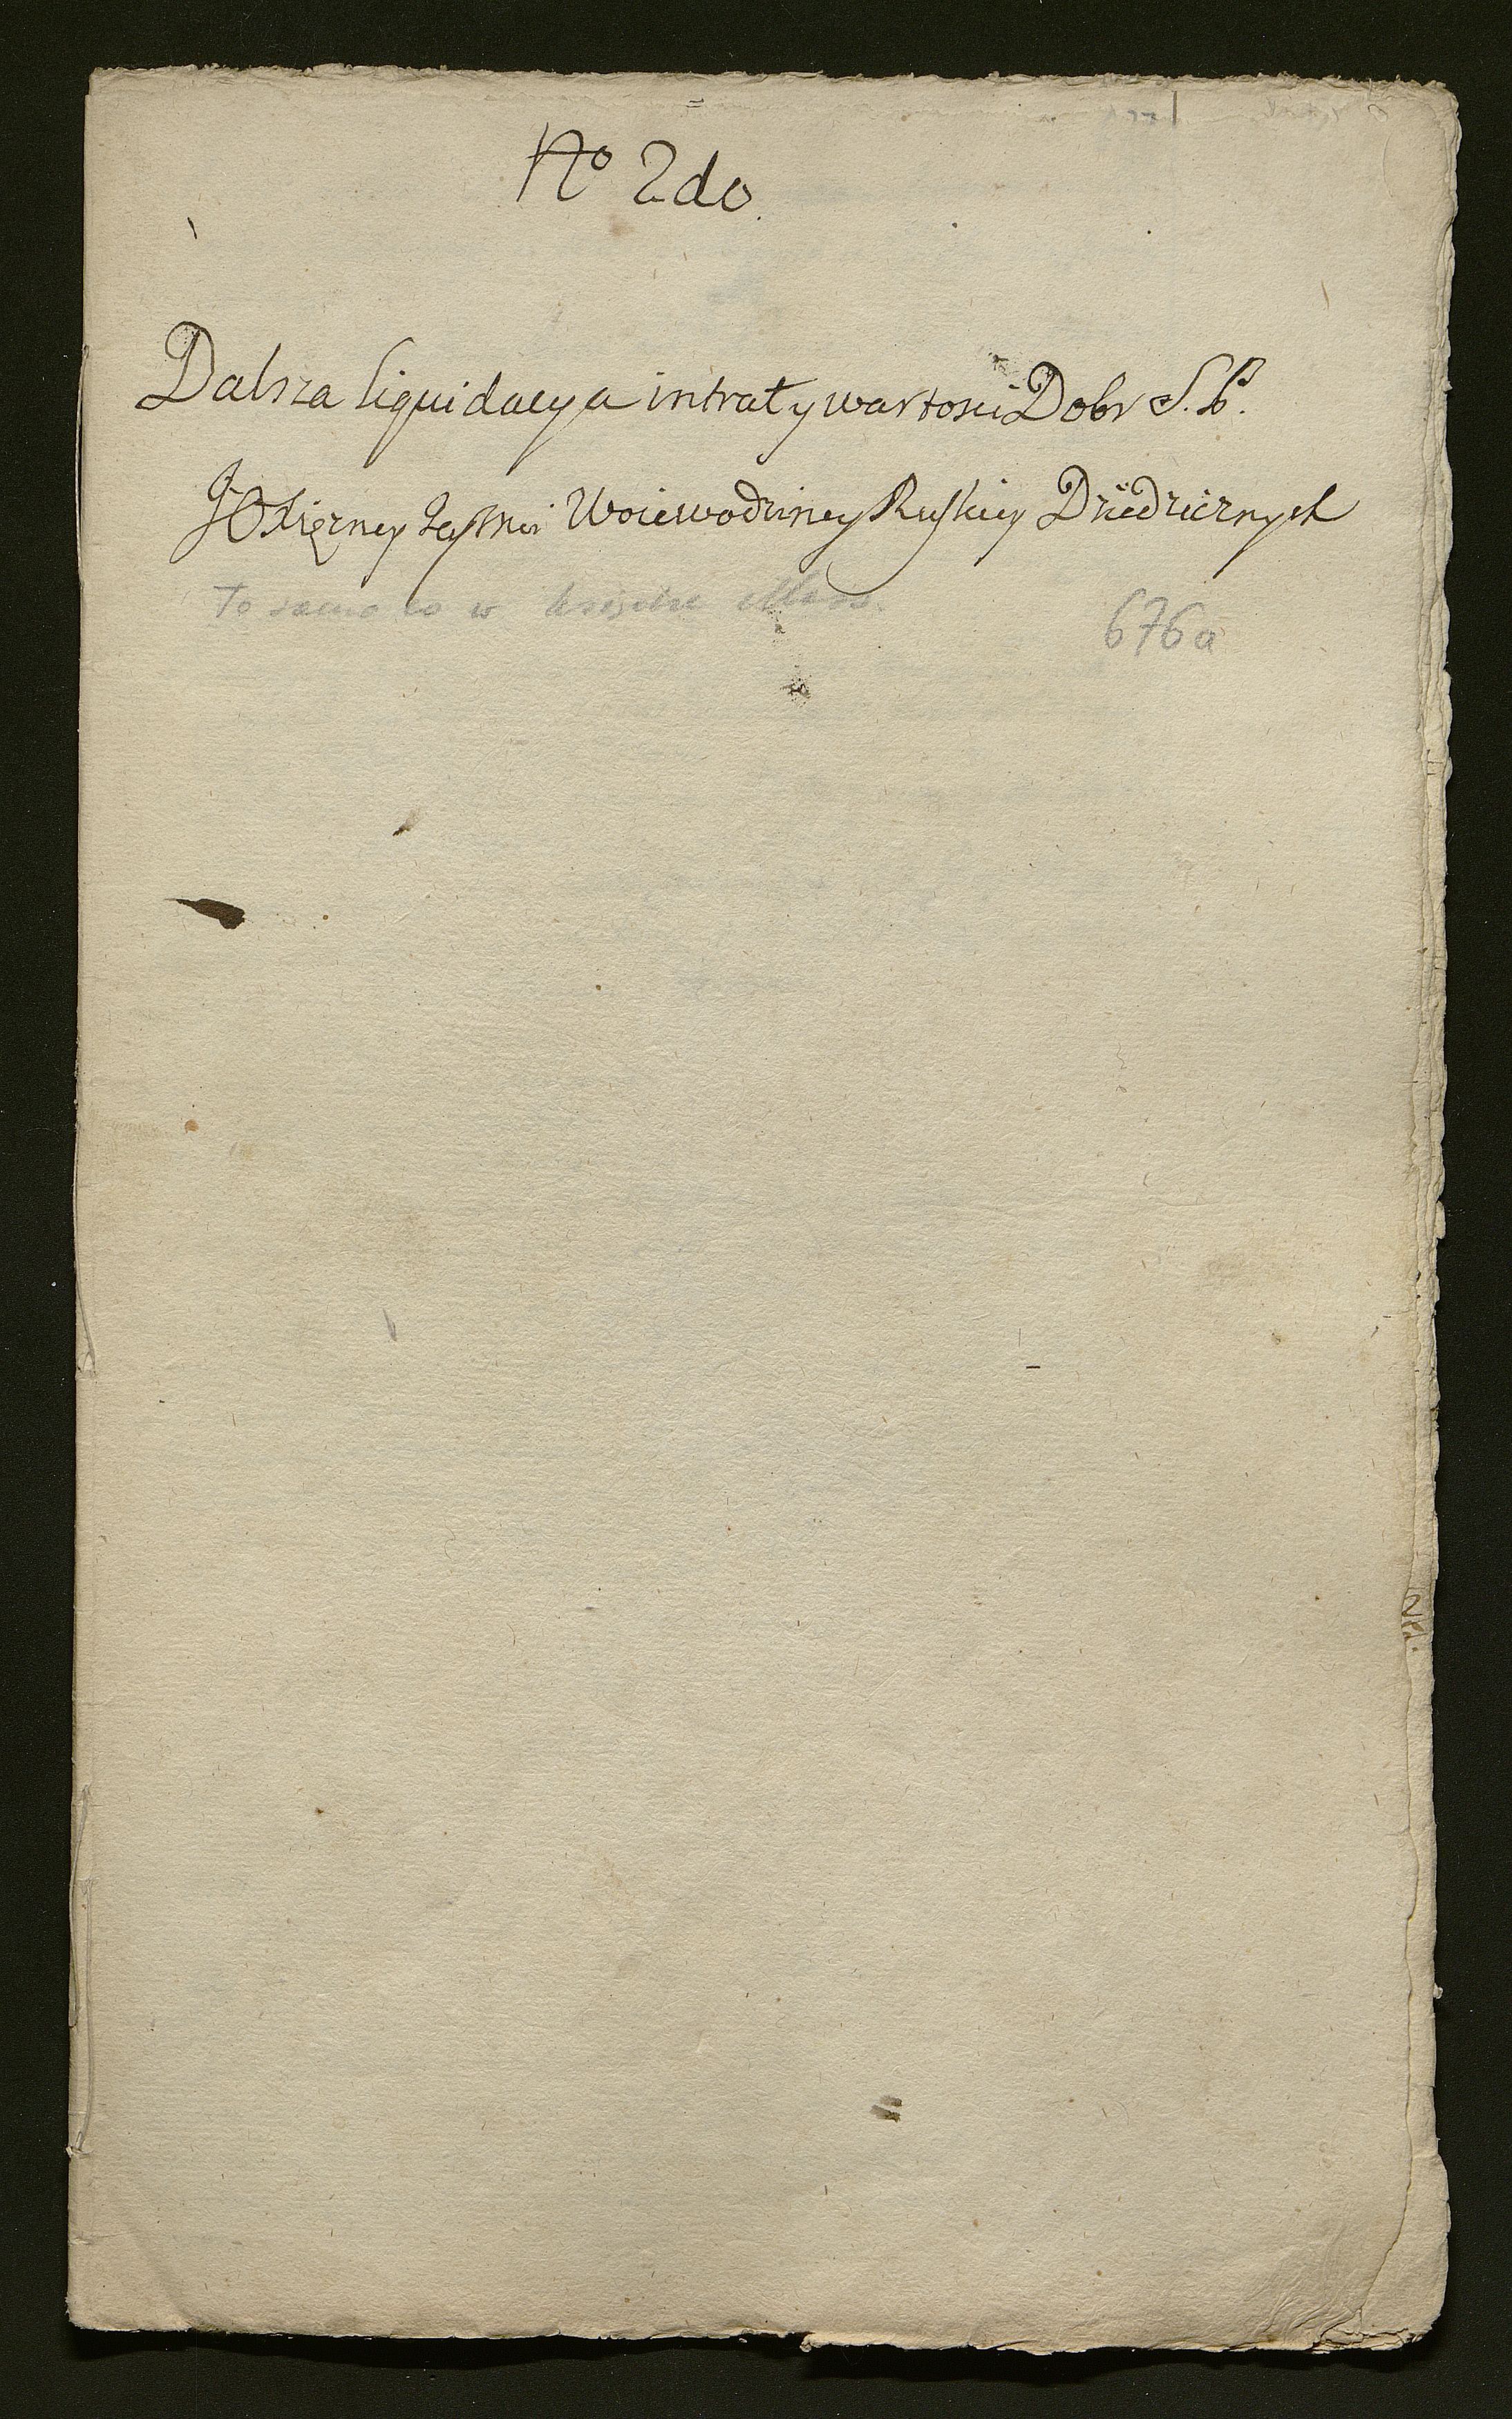 No 2do.
Dalsza liquidacya intraty wartosci Dobr S. P.
JO Xiężney Jeymci Woiewodziney Ruskiey Dziedzicznych
To samo co w
676a